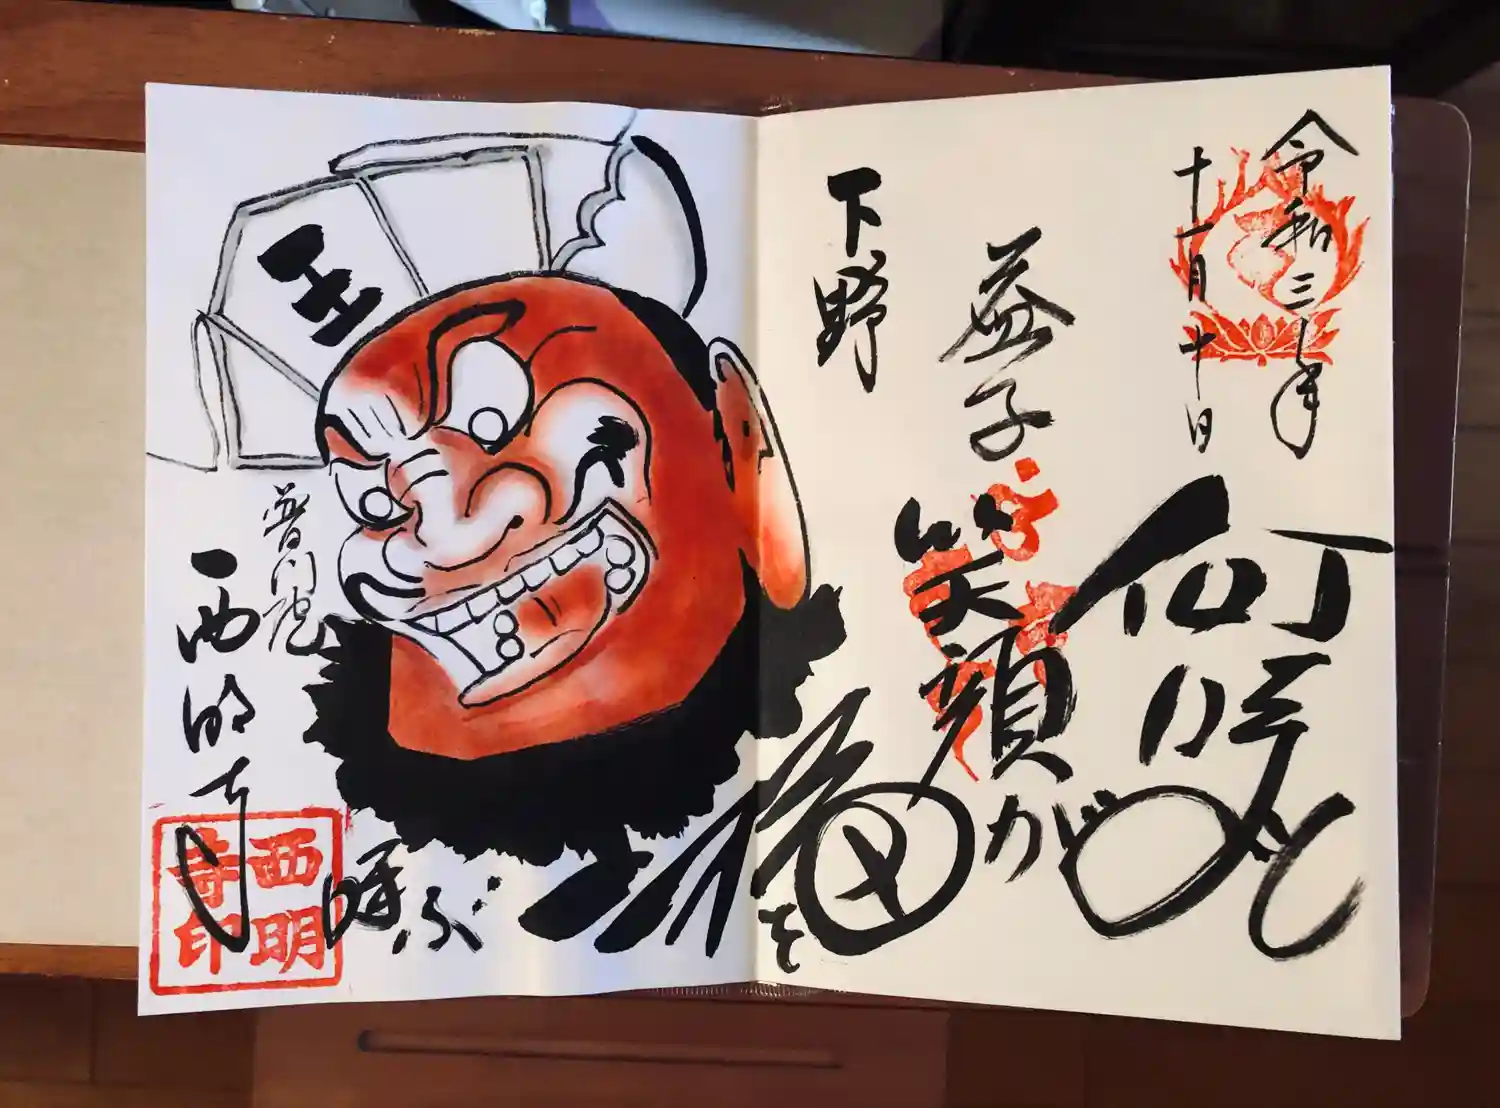 令和三年
十一月十日
何時も
益子
笑顔が
下野
福を
呼ぶ
王
普門院
西明寺
西明
寺印